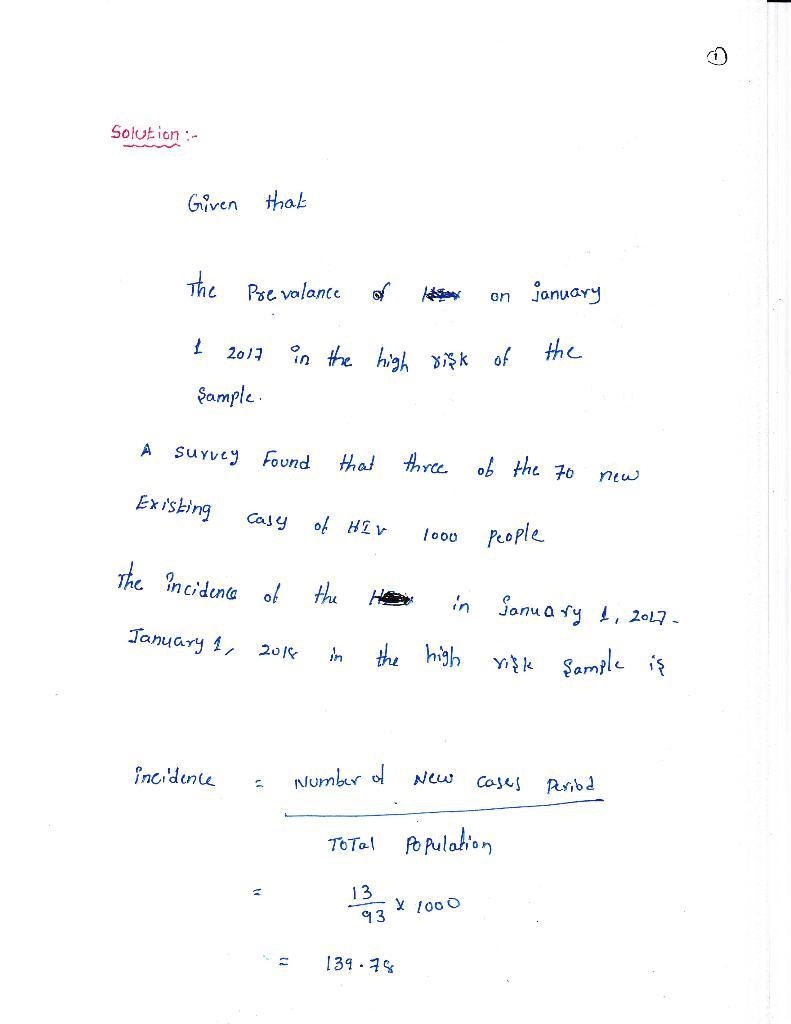 1
Solution :-
Given that
The Prevalance of on January
1 2017 in the high risk of the
Sample.
A survey Found that three of the 70 new
Existing Casy of HIV 1000 people
The incidence of the in January 1, 2017 -
January 1, 2018 in the high risk Sample is
incidence = Number of New cases Period
Total Population
= 13
93 x 1000
= 139.78